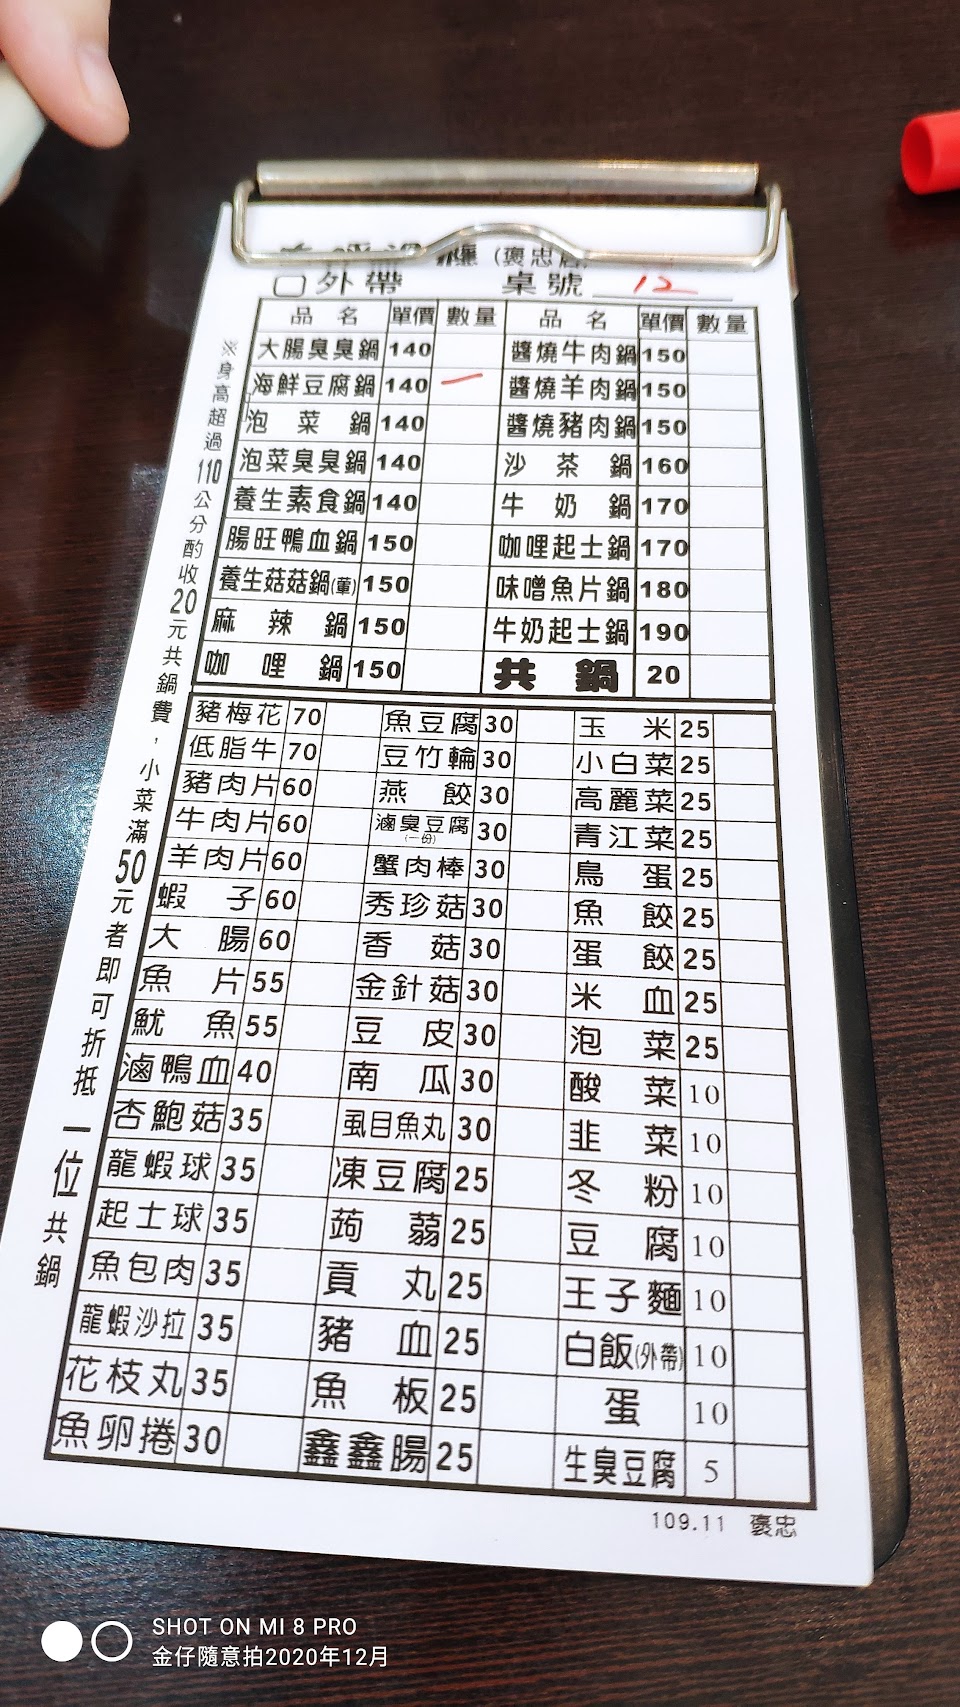 (褒忠店)
外帶 桌號 12
品名 單價 數量 品名 單價 數量
大腸臭臭鍋 140 醬燒牛肉鍋 150
海鮮豆腐鍋 140 一 醬燒羊肉鍋 150
泡菜鍋 140 醬燒豬肉鍋 150
泡菜臭臭鍋 140 沙茶鍋 160
養生素食鍋 140 牛奶鍋 170
腸旺鴨血鍋 150 咖哩起士鍋 170
養生菇菇鍋(葷) 150 味噌魚片鍋 180
麻辣鍋 150 牛奶起士鍋 190
咖哩鍋 150 共鍋 20
豬梅花 70 魚豆腐 30 玉米 25
低脂牛 70 豆竹輪 30 小白菜 25
豬肉片 60 燕餃 30 高麗菜 25
牛肉片 60 滷臭豆腐(一份) 30 青江菜 25
羊肉片 60 蟹肉棒 30 鳥蛋 25
蝦子 60 秀珍菇 30 魚餃 25
大腸 60 香菇 30 蛋餃 25
魚片 55 金針菇 30 米血 25
魷魚 55 豆皮 30 泡菜 25
滷鴨血 40 南瓜 30 酸菜 10
杏鮑菇 35 虱目魚丸 30 韭菜 10
龍蝦球 35 凍豆腐 25 冬粉 10
起士球 35 蒟蒻 25 豆腐 10
魚包肉 35 貢丸 25 王子麵 10
龍蝦沙拉 35 豬血 25 白飯(外帶) 10
花枝丸 35 魚板 25 蛋 10
魚卵捲 30 鑫鑫腸 25 生臭豆腐 5
※身高超過110公分酌收20元共鍋費，小菜滿50元者即可折抵一位共鍋
109.11 褒忠
SHOT ON MI 8 PRO
金仔隨意拍2020年12月